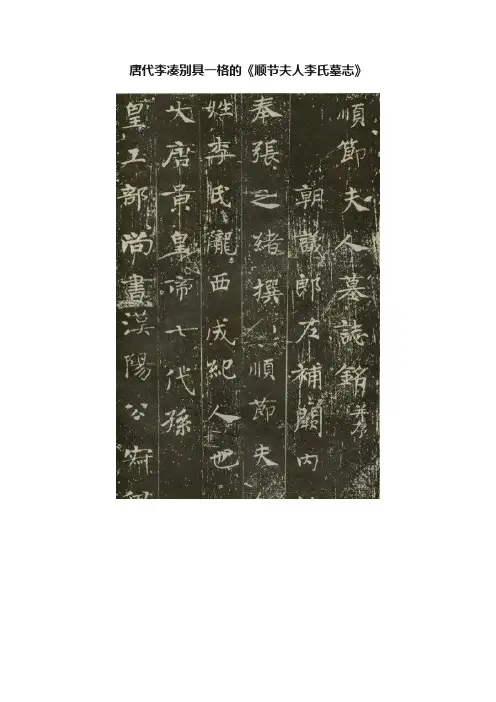 唐代李凑别具一格的《顺节夫人李氏墓志》
順節夫人墓誌銘并序
朝議郎左補闕內
奉張之緒撰順節夫
姓李氏隴西成紀人也
大唐景皇帝七代孫
皇工部尚書漢陽公